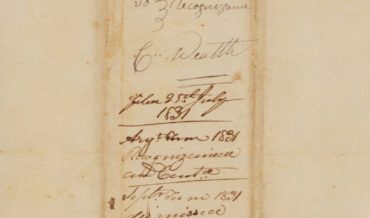 Recognizance
C. Wealth
Filed 25th July
1831
Augt Term 1831
Recognizance
and Contd
Septr Term 1831